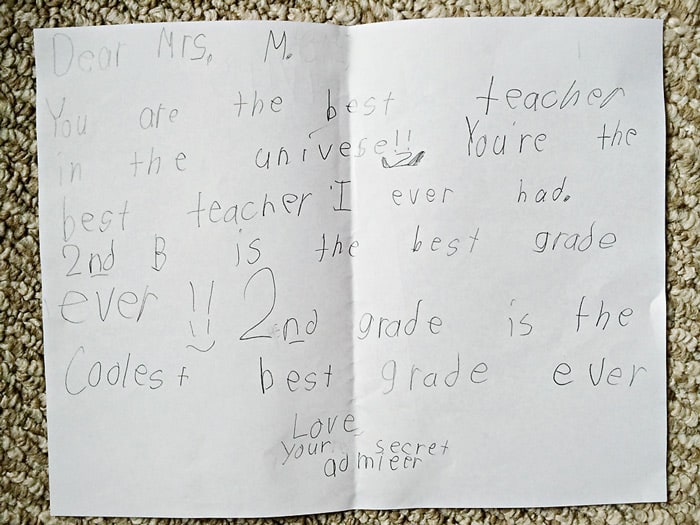 Dear Mrs. M.
You are the best teacher
in the univese!! You're the
best teacher I ever had.
2nd B is the best grade
ever!! 2nd grade is the
Coolest best grade ever
Love
your secret
admieer